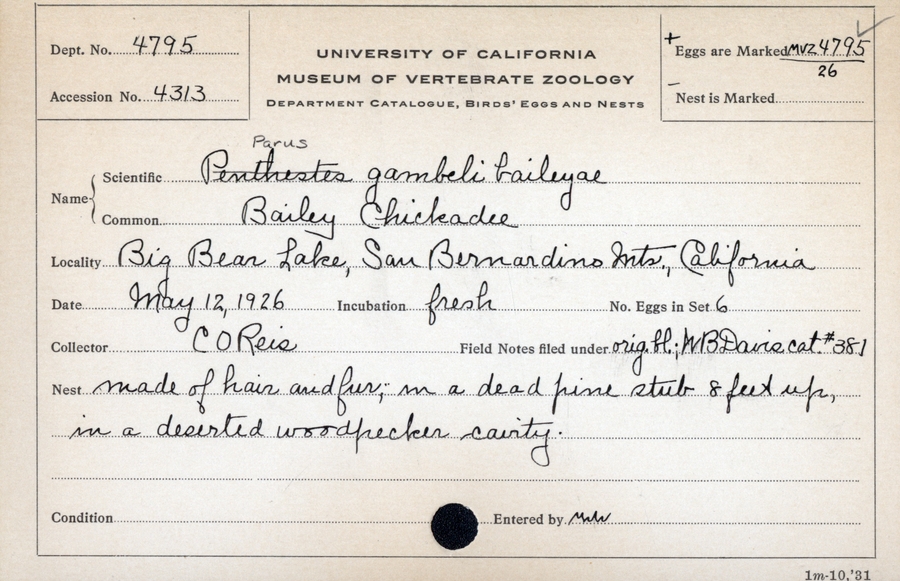 Dept. No. 4795
Accession No. 4313
UNIVERSITY OF CALIFORNIA
MUSEUM OF VERTEBRATE ZOOLOGY
DEPARTMENT CATALOGUE, BIRDS' EGGS AND NESTS
+ Eggs are Marked MVZ 4795
26
– Nest is Marked
Parus
Name Scientific Penthestes gambeli baileyae
Common Bailey Chickadee
Locality Big Bear Lake, San Bernardino Mts., California
Date May 12, 1926 Incubation fresh No. Eggs in Set 6
Collector C O Reis Field Notes filed under orig. bl.; WB Davis cat. #381
Nest made of hair and fur; in a dead pine stub 8 feet up,
in a deserted woodpecker cavity.
Condition Entered by
1m-10,'31